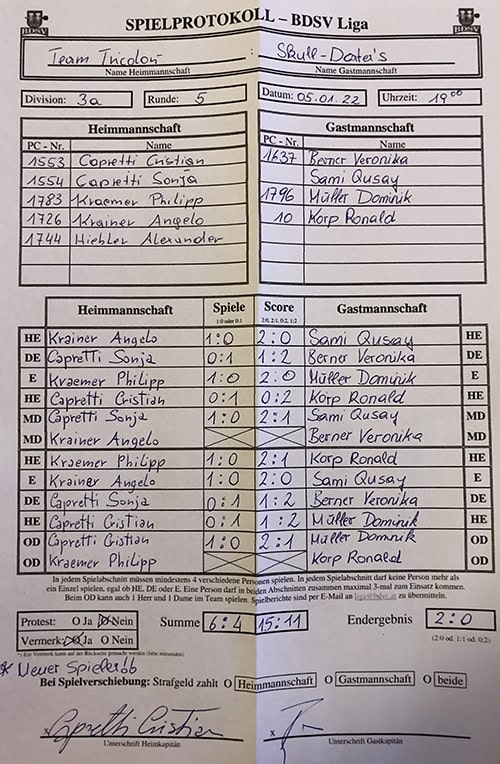 SPIELPROTOKOLL – BDSV Liga
BDSV
BDSV
Team Tricolor : Skull-Darter's
Name Heimmannschaft Name Gastmannschaft
Division: 3a Runde: 5 Datum: 05.01.22 Uhrzeit: 19 00
Heimmannschaft Gastmannschaft
PC - Nr. Name PC - Nr. Name
1553 Capretti Cristian 1637 Berner Veronika
1554 Capretti Sonja Sami Qusay
1783 Kraemer Philipp 1796 Müller Dominik
1726 Krainer Angelo 10 Korp Ronald
1744 Hiebler Alexander
Heimmannschaft Spiele Score Gastmannschaft
1:0 oder 0:1 2:0, 2:1, 0:2, 1:2
HE Krainer Angelo 1:0 2:0 Sami Qusay HE
DE Capretti Sonja 0:1 1:2 Berner Veronika DE
E Kraemer Philipp 1:0 2:0 Müller Dominik E
HE Capretti Cristian 0:1 0:2 Korp Ronald HE
MD Capretti Sonja 1:0 2:1 Sami Qusay MD
MD Krainer Angelo Berner Veronika MD
HE Kraemer Philipp 1:0 2:1 Korp Ronald HE
E Krainer Angelo 1:0 2:0 Sami Qusay E
DE Capretti Sonja 0:1 1:2 Berner Veronika DE
HE Capretti Cristian 0:1 1:2 Müller Dominik HE
OD Capretti Cristian 1:0 2:1 Müller Dominik OD
OD Kraemer Philipp Korp Ronald OD
In jedem Spielabschnitt müssen mindestens 4 verschiedene Personen spielen. In jedem Spielabschnitt darf keine Person mehr als
ein Einzel spielen, egal ob HE, DE oder E. Eine Person darf in beiden Abschnitten zusammen maximal 3-mal zum Einsatz kommen.
Beim OD kann auch 1 Herr und 1 Dame im Team spielen. Spielberichte sind per E-Mail an liga@bdsv.at zu übermitteln.
Protest: O Ja O Nein Summe 6:4 15:11 Endergebnis 2:0
Vermerk: O Ja O Nein (2:0 od. 1:1 od. 0:2)
*) Ein Vermerk kann auf der Rückseite gemacht werden (bitte umseitig)
* Neuer Spieler
Bei Spielverschiebung: Strafgeld zahlt O Heimmannschaft O Gastmannschaft O beide
x Capretti Cristian x
Unterschrift Heimkapitän Unterschrift Gastkapitän